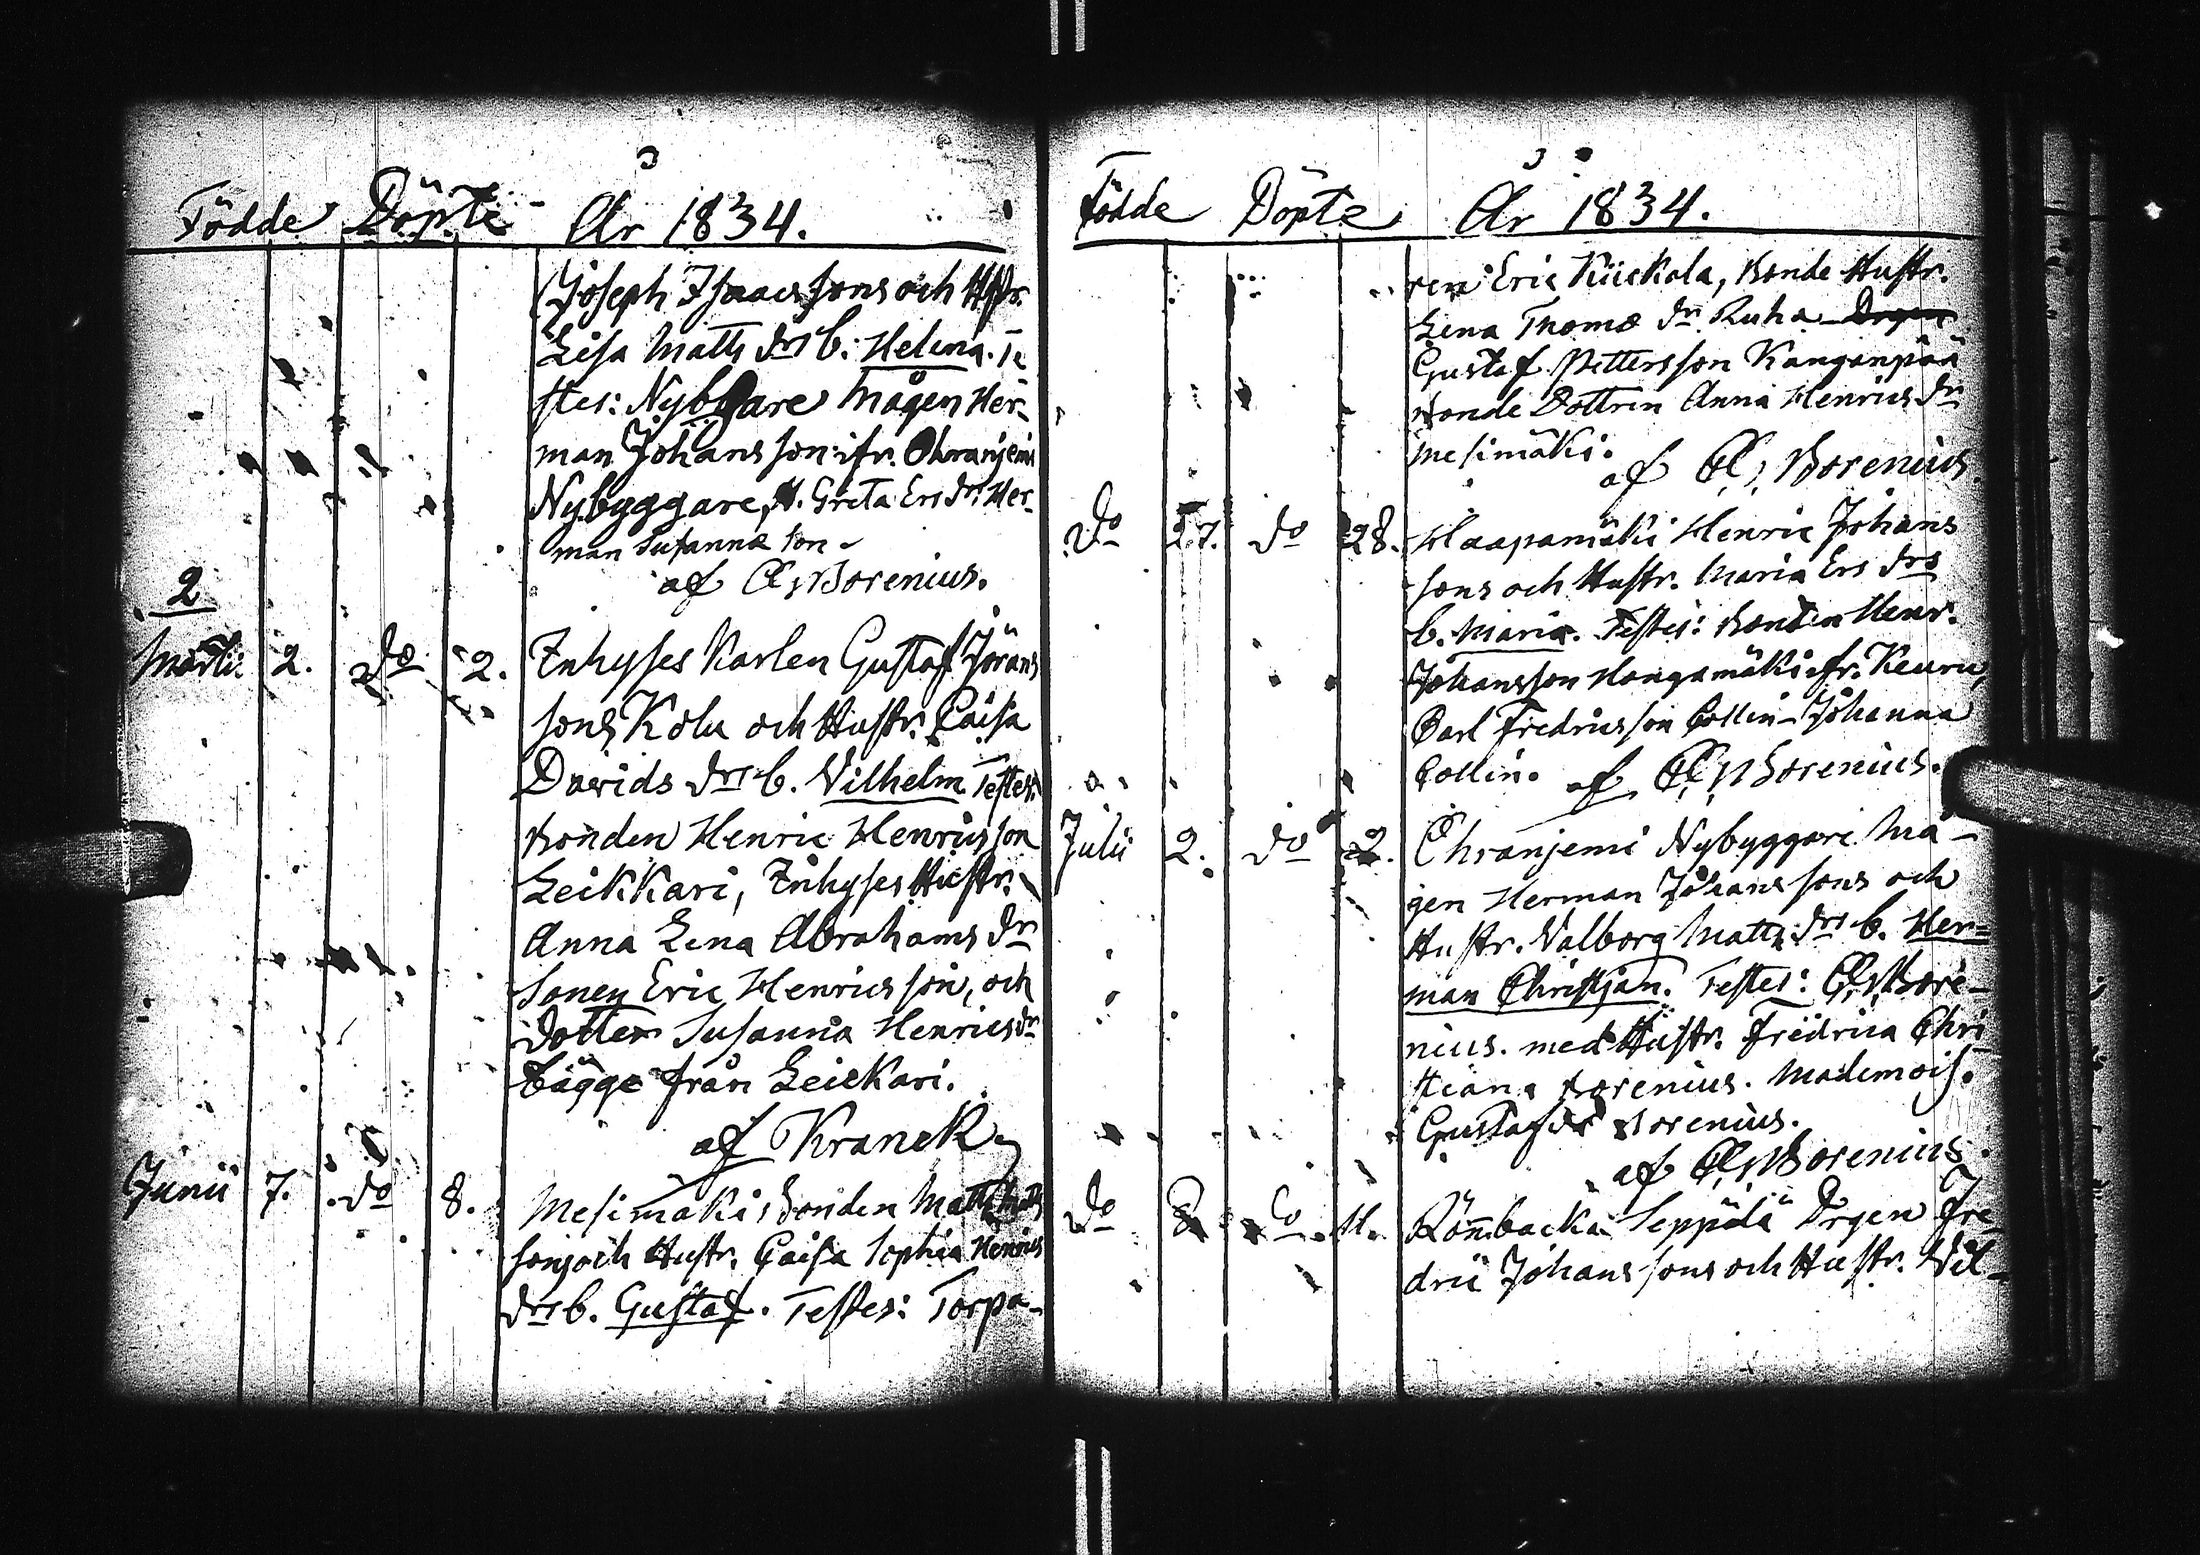 3
Födde Döpte År 1834.
Joseph Isaacssons och Hstr.
Lisa Matts drs b. Helena. Te
stes: Nybggare Mågen Her-
man Johansson ifr. Ohranjemi
Nybyggare, H. Greta Ers dr. Her-
man Susannæ son
af A, Borenius.
2
Martii 2. do 2. Inhyses Karlen Gustaf Jörans
sons Kolu och Hustr. Caisa
Davids drs b. Vilhelm Testes:
Bonden Henric Henricsson
Leikkari, Inhyses Hustr.
Anna Lena Abrahams dr
Sonen Eric Henricsson, och
dotter Susanna Henricsdr
bägge från Leickari.
af Kranck
Junii 7. do 8. Mesimäki Bonden Matts Matts
sons och Hustr. Caisa Sophia Henrics
drs b. Gustaf. Testes: Torpa-
3
Födde Döpte År 1834.
ren Eric Kiiskola, Bonde Hustr.
Lena Thomæ dr Ruha Drgen
Gustaf Pettersson Kanganpää
Bonde Dottren Anna Henrics dr
Mesimäki.
af A, Borenius.
do 27. do 28. Haapamäki Henric Johans
sons och Hustr. Maria Ers drs
b. Maria. Testes: Bonden Henr.
Johansson Hangamäki fr. Keuru,
Carl Fredricsson Collin Johanna
Collin. af A, Borenius.
Julii 2. do 2. Ohranjemi Nybyggare Må-
gen Herman Johanssons och
Hustr. Valborg Matts drs b. Her=
man Christjan. Testes: A, Bore-
nius. med Hustr. Fredrica Chri
stiana Borenius. Mademois.
Gustafva Borenius.
af A, Borenius.
do 8 do 11. Rönnbacka Seppälä Drgen Fre
dric Johanssons och Hustr. Vil-